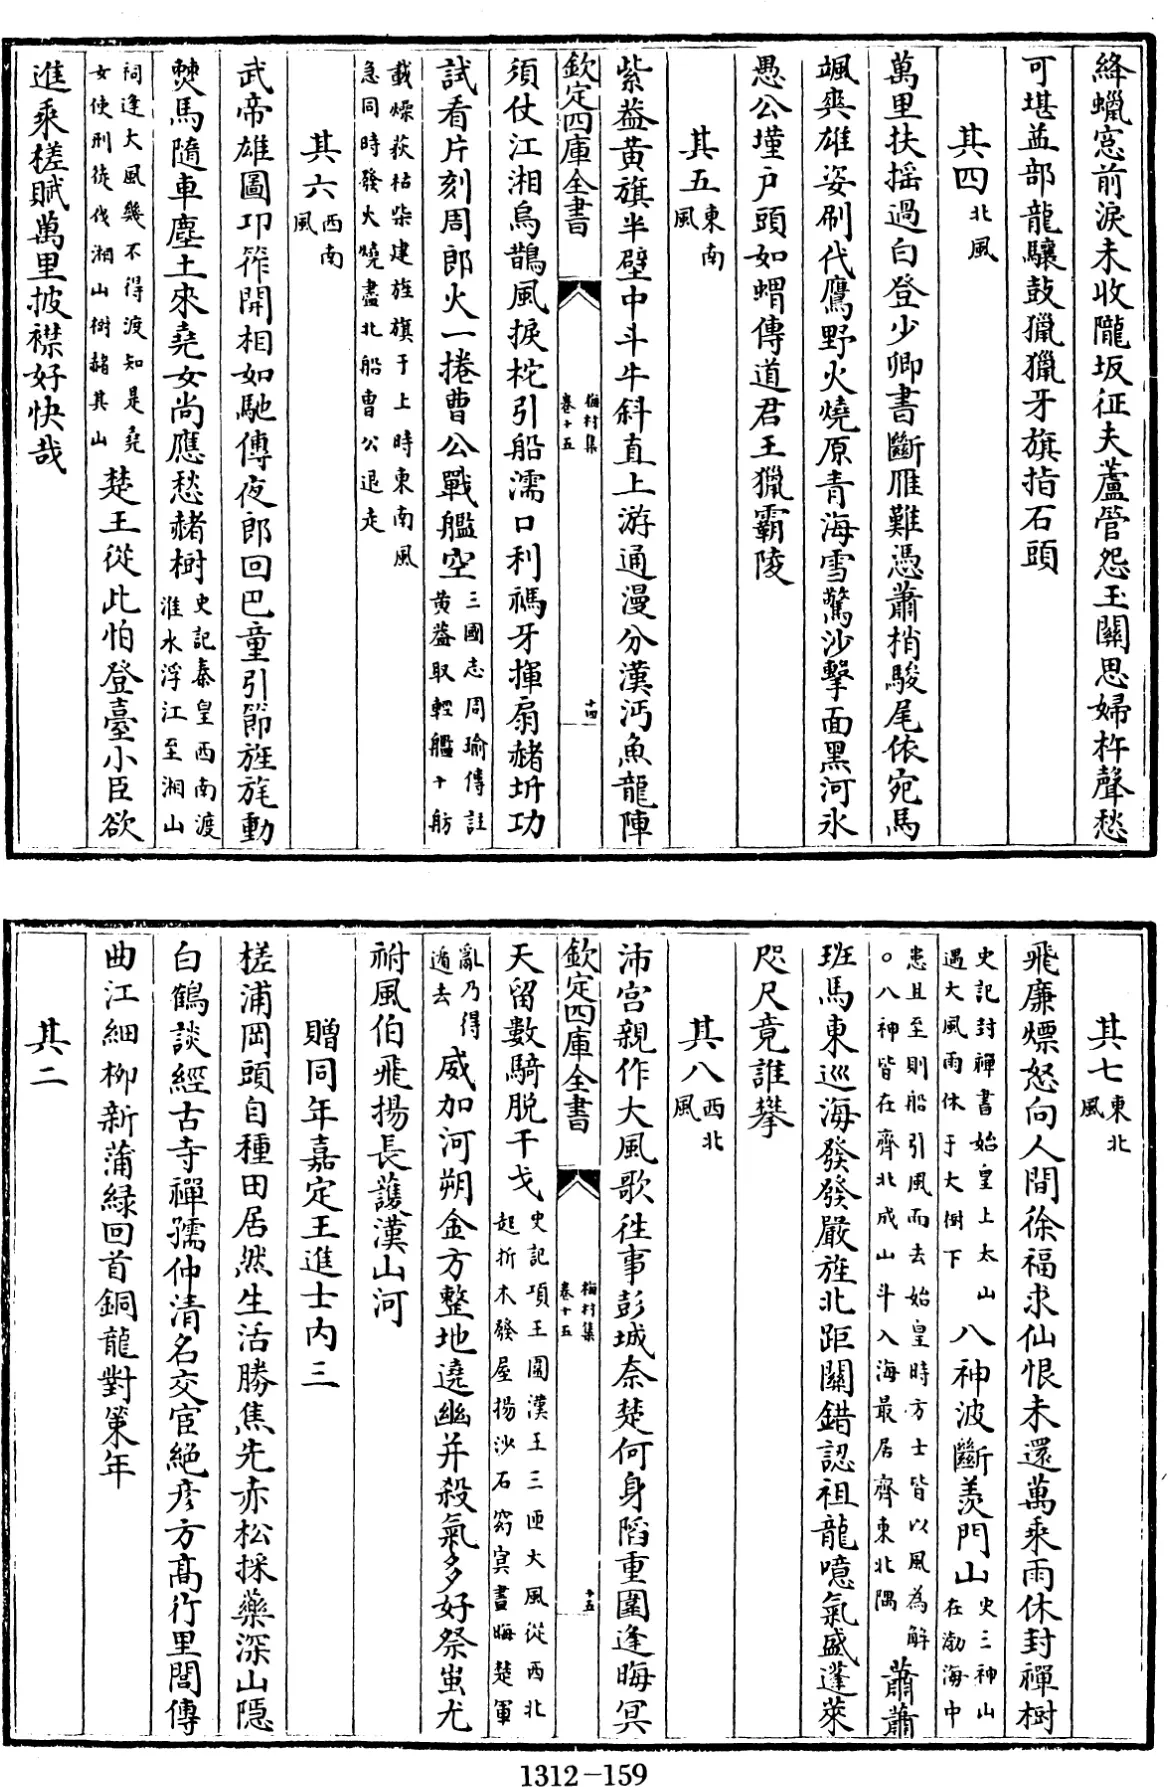 絳蠟窓前淚未收隴坂征夫蘆管怨玉關思婦杵聲愁
可堪益部龍驤鼓獵獵牙旗指石頭
其四北風
萬里扶搖過白登少卿書斷雁難憑蕭梢駿尾依宛馬
颯爽雄姿刷代鷹野火燒原青海雪驚沙擊面黑河氷
愚公墐户頭如蝟傳道君王獵霸陵
其五東南風
紫葢黄旗半壁中斗牛斜直上游通漫分漢沔魚龍陣
欽定四庫全書
梅村集
卷十五
十四
須仗江湘烏鵲風捩柁引船濡口利禡牙揮扇赭圻功
試看片刻周郎火一捲曹公戰艦空三國志周瑜傳註
黄葢取輕艦十舫
載燥荻枯柴建旌旗于上時東南風
急同時發火燒盡北船曹公退走
其六西南風
武帝雄圖卭筰開相如馳傳夜郎回巴童引節旌旄動
僰馬隨車塵土來堯女尚應愁赭樹史記秦皇西南渡
淮水浮江至湘山
祠逢大風幾不得渡知是堯
女使刑徒伐湘山樹赭其山
楚王從此怕登臺小臣欲
進乘槎賦萬里披襟好快哉
其七東北風
飛廉熛怒向人間徐福求仙恨未還萬乘雨休封禪樹
史記封禪書始皇上太山
遇大風雨休于大樹下
八神波斷羡門山史三神山
在渤海中
患且至則船引風而去始皇時方士皆以風為解
○八神皆在齊北成山斗入海最居齊東北隅
蕭蕭
班馬東巡海發發嚴旌北距關錯認祖龍噫氣盛蓬萊
咫尺竟誰攀
其八西北風
沛宫親作大風歌徃事彭城奈楚何身陷重圍逢晦冥
欽定四庫全書
梅村集
卷十五
十五
天留數騎脱干戈史記項王圍漢王三匝大風從西北
起折木發屋揚沙石窈冥晝晦楚軍
亂乃得
遁去
威加河朔金方整地遶幽并殺氣多好祭蚩尤
祔風伯飛揚長護漢山河
贈同年嘉定王進士内三
槎浦岡頭自種田居然生活勝焦先赤松採藥深山隱
白鶴談經古寺禪孺仲清名交宦絶彦方高行里閭傳
曲江細柳新蒲緑回首銅龍對策年
其二
1312-159